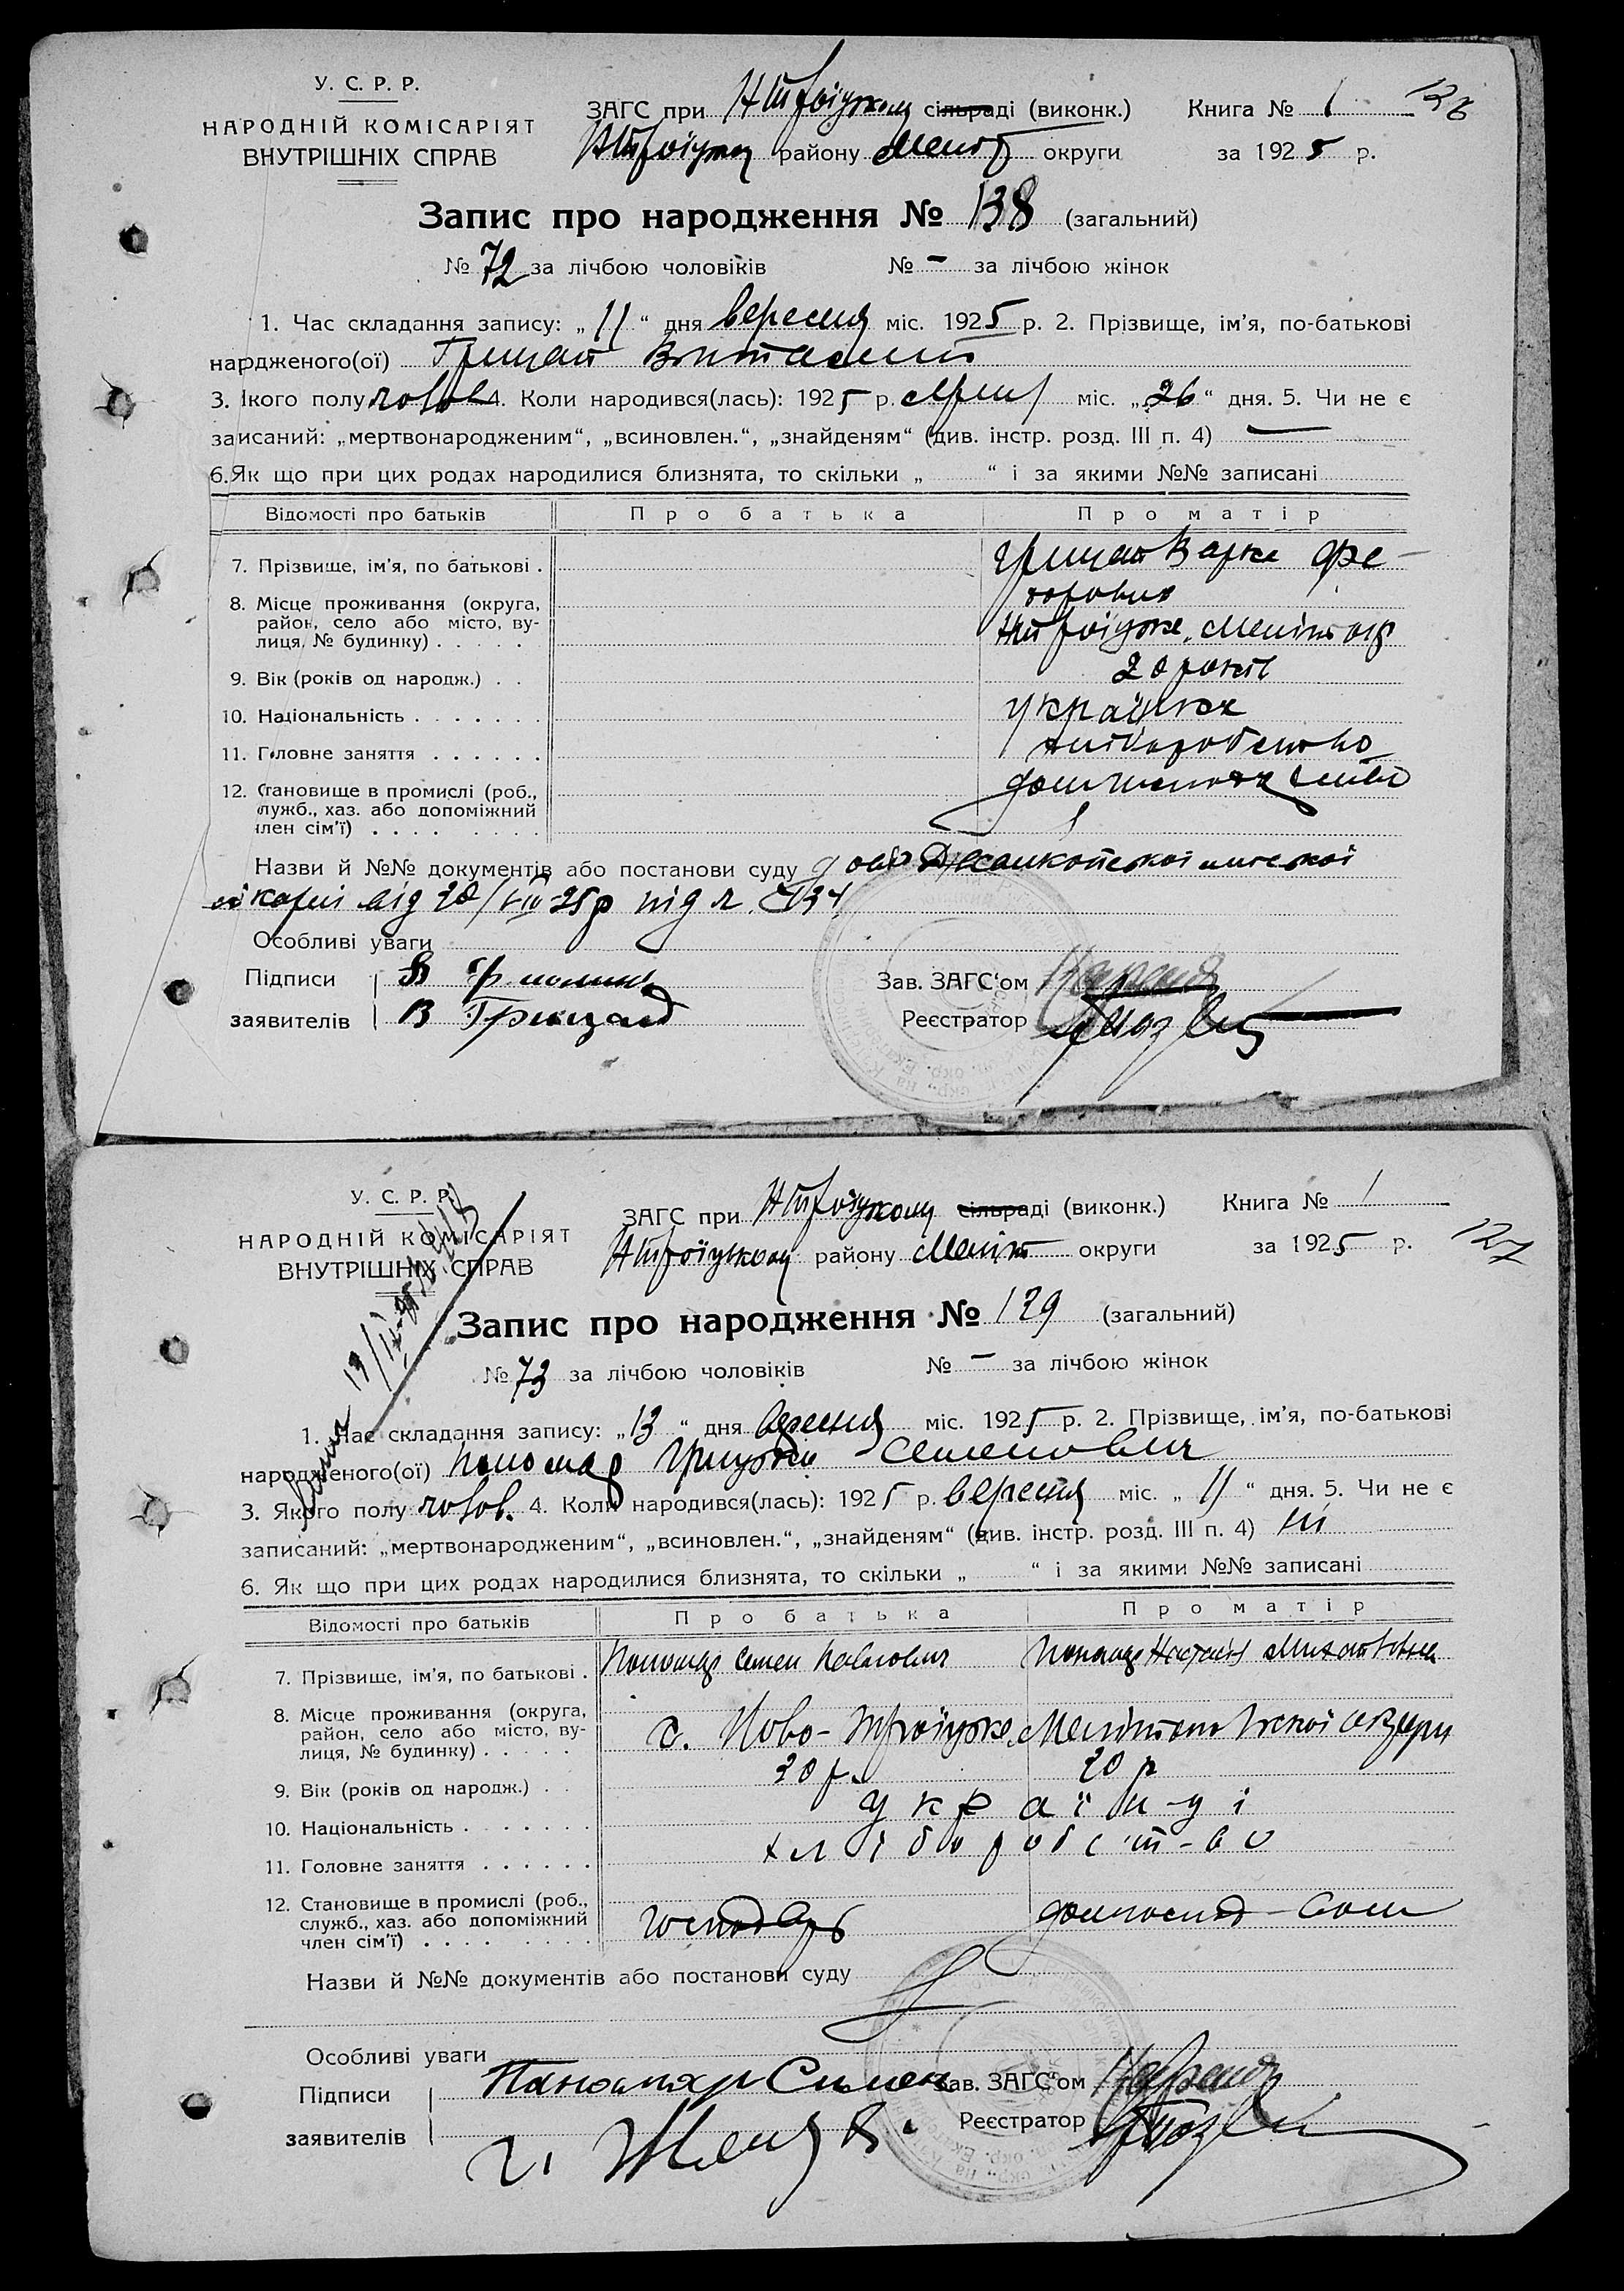 У. С. Р. Р.
НАРОДНІЙ КОМІСАРІЯТ
ВНУТРІШНІХ СПРАВ
ЗАГС при НТроїцком сільраді (виконк.) Книга № 1
району Меліт округи за 1925 р.
Запис про народження № 138 (загальний)
№ 72 за лічбою чоловіків № – за лічбою жінок
1. Час складання запису: „11“ дня вересня міс. 1925 р. 2. Прізвище, ім’я, по-батькові
нардженого(ої) Грицай Виталий
3. Якого полу чолов 4. Коли народився(лась): 1925 р. міс. „26“ дня. 5. Чи не є
записаний: „мертвонародженим“, „всиновлен.“, „знайденям“ (див. інстр. розд. III п. 4) —
6. Як що при цих родах народилися близнята, то скільки „ “ і за якими №№ записані
Відомості про батьків Про батька Про матір
7. Прізвище, ім’я, по батькові . Грицай Варка Фе-
доровна
8. Місце проживання (округа,
район, село або місто, ву-
лиця, № будинку) . . . . . НТроїцке, Меліт окр
9. Вік (років од народж.) . . 20 років
10. Національність . . . . . . . українка
11. Головне заняття . . . . . . хліборобство
12. Становище в промислі (роб.,
служб., хаз. або допоміжний
член сім’ї) . . . . . . . .
Назви й №№ документів або постанови суду Джанкойської міської
лікарні від 28/VIII-25р під №
Особливі уваги
Підписи
заявителів В Грицай
Зав. ЗАГС‘ом
Реєстратор
У. С. Р. Р.
НАРОДНІЙ КОМІСАРІЯТ
ВНУТРІШНІХ СПРАВ
ЗАГС при НТроїцком сільраді (виконк.) Книга № 1
НТроїцком району Меліт округи за 1925 р. 127
Запис про народження № 129 (загальний)
№ 73 за лічбою чоловіків № – за лічбою жінок
1. Час складання запису: „13“ дня вересня міс. 1925 р. 2. Прізвище, ім’я, по-батькові
народженого(ої) Пономар Григорій Семенович
3. Якого полу чолов. 4. Коли народився(лась): 1925 р. вересня міс. „11“ дня. 5. Чи не є
записаний: „мертвонародженим“, „всиновлен.“, „знайденям“ (див. інстр. розд. III п. 4) ні
6. Як що при цих родах народилися близнята, то скільки „ “ і за якими №№ записані
Відомості про батьків Про батька Про матір
7. Прізвище, ім’я, по батькові . Пономар Семен Павлович Пономар Наталія Михайловна
8. Місце проживання (округа,
район, село або місто, ву-
лиця, № будинку) . . . . . с. Ново-Троїцке, Мелітопольскої округи
9. Вік (років од народж.) . . 20 р. 20 р
10. Національність . . . . . . . українці
11. Головне заняття . . . . . . хліборобст-во
12. Становище в промислі (роб.,
служб., хаз. або допоміжний
член сім’ї) . . . . . . . . господарь
Назви й №№ документів або постанови суду
Особливі уваги
Підписи Паномар Симен
заявителів
Зав. ЗАГС‘ом
Реєстратор